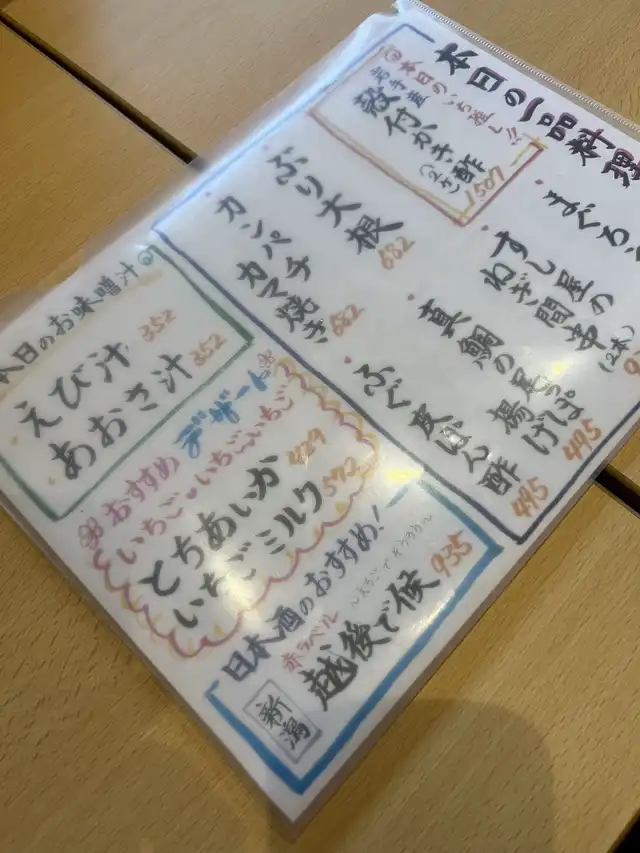 本日の一品料理
本日のいち推し!!
岩手産
殻付カキ酢
(2コ) 1507
まぐろ
すし屋の
ねぎ間串
(2本)
真鯛の尾っぽ
揚げ 495
ふぐ皮ぽん酢
495
ぶり大根
682
カンパチ
カマ焼き 682
本日のお味噌汁
えび汁 352
あおさ汁 352
おすすめ デザート
いちご・いちご・いちご
とちあいか 429
いちごミルク 572
日本酒のおすすめ!
~えちごでそうろう~
赤ラベル
越後で候 935
新潟